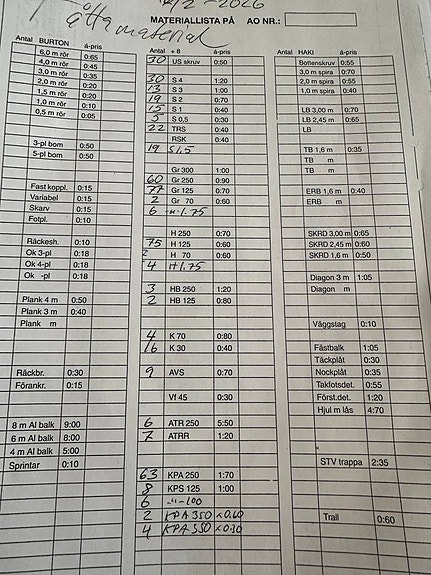 12/2-2026
åtta material
MATERIALLISTA PÅ AO NR.:
Antal BURTON á-pris
6,0 m rör 0:65
4,0 m rör 0:45
3,0 m rör 0:35
2,0 m rör 0:20
1,5 m rör 0:20
1,0 m rör 0:10
0,5 m rör 0:05
3-pl bom 0:50
5-pl bom 0:50
Fast koppl. 0:15
Variabel 0:15
Skarv 0:15
Fotpl. 0:10
Räckesh. 0:10
Ok 3-pl 0:18
Ok 4-pl 0:18
Ok -pl 0:18
Plank 4 m 0:50
Plank 3 m 0:40
Plank m
Räckbr. 0:30
Förankr. 0:15
8 m Al balk 9:00
6 m Al balk 8:00
4 m Al balk 5:00
Sprintar 0:10
Antal + 8 á-pris
30 US skruv 0:50
30 S 4 1:20
13 S 3 1:00
19 S 2 0:70
15 S 1 0:40
5 S 0,5 0:30
22 TRS 0:40
RSK 0:40
19 S1.5
Gr 300 1:00
60 Gr 250 0:90
77 Gr 125 0:70
2 Gr 70 0:60
6 -"- 1.75
H 250 0:70
75 H 125 0:60
2 H 70 0:60
4 H 1.75
3 HB 250 1:20
2 HB 125 0:80
4 K 70 0:80
16 K 30 0:40
9 AVS 0:70
Vf 45 0:30
6 ATR 250 5:50
7 ATRR 1:20
63 KPA 250 1:70
8 KPS 125 1:00
6 -"- 100
2 KPA 350 x 0.60
4 KPA 350 x 0.30
Antal HAKI á-pris
Bottenskruv 0:55
3,0 m spira 0:70
2,0 m spira 0:55
1,0 m spira 0:40
LB 3,00 m 0:70
LB 2,45 m 0:65
LB
TB 1,6 m 0:35
TB m
TB m
ERB 1,6 m 0:40
ERB m
SKRD 3,00 m 0:65
SKRD 2,45 m 0:60
SKRD 1,6 m 0:50
Diagon 3 m 1:05
Diagon m
Väggstag 0:10
Fästbalk 1:05
Täckplåt 0:30
Nockplåt 0:35
Takfotsdet. 0:55
Först.det. 1:20
Hjul m lås 4:70
STV trappa 2:35
Trall 0:60